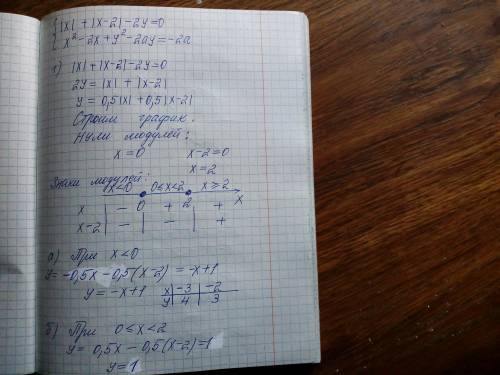 { |x| + |x-2| - 2y = 0
x² - 2x + y² - 2ay = -2a
1) |x| + |x-2| - 2y = 0
2y = |x| + |x-2|
y = 0,5|x| + 0,5|x-2|
Строим график.
Нули модулей:
x = 0 x-2=0
x = 2
Знаки модулей:
x<0 0≤x<2 x≥2
0 2 x
x | - | + | +
x-2 | - | - | +
а) При x<0
y = -0,5x - 0,5(x-2) = -x+1
y = -x+1 x | -3 | -2
y | 4 | 3
б) При 0≤x<2
y = 0,5x - 0,5(x-2)=1
y = 1